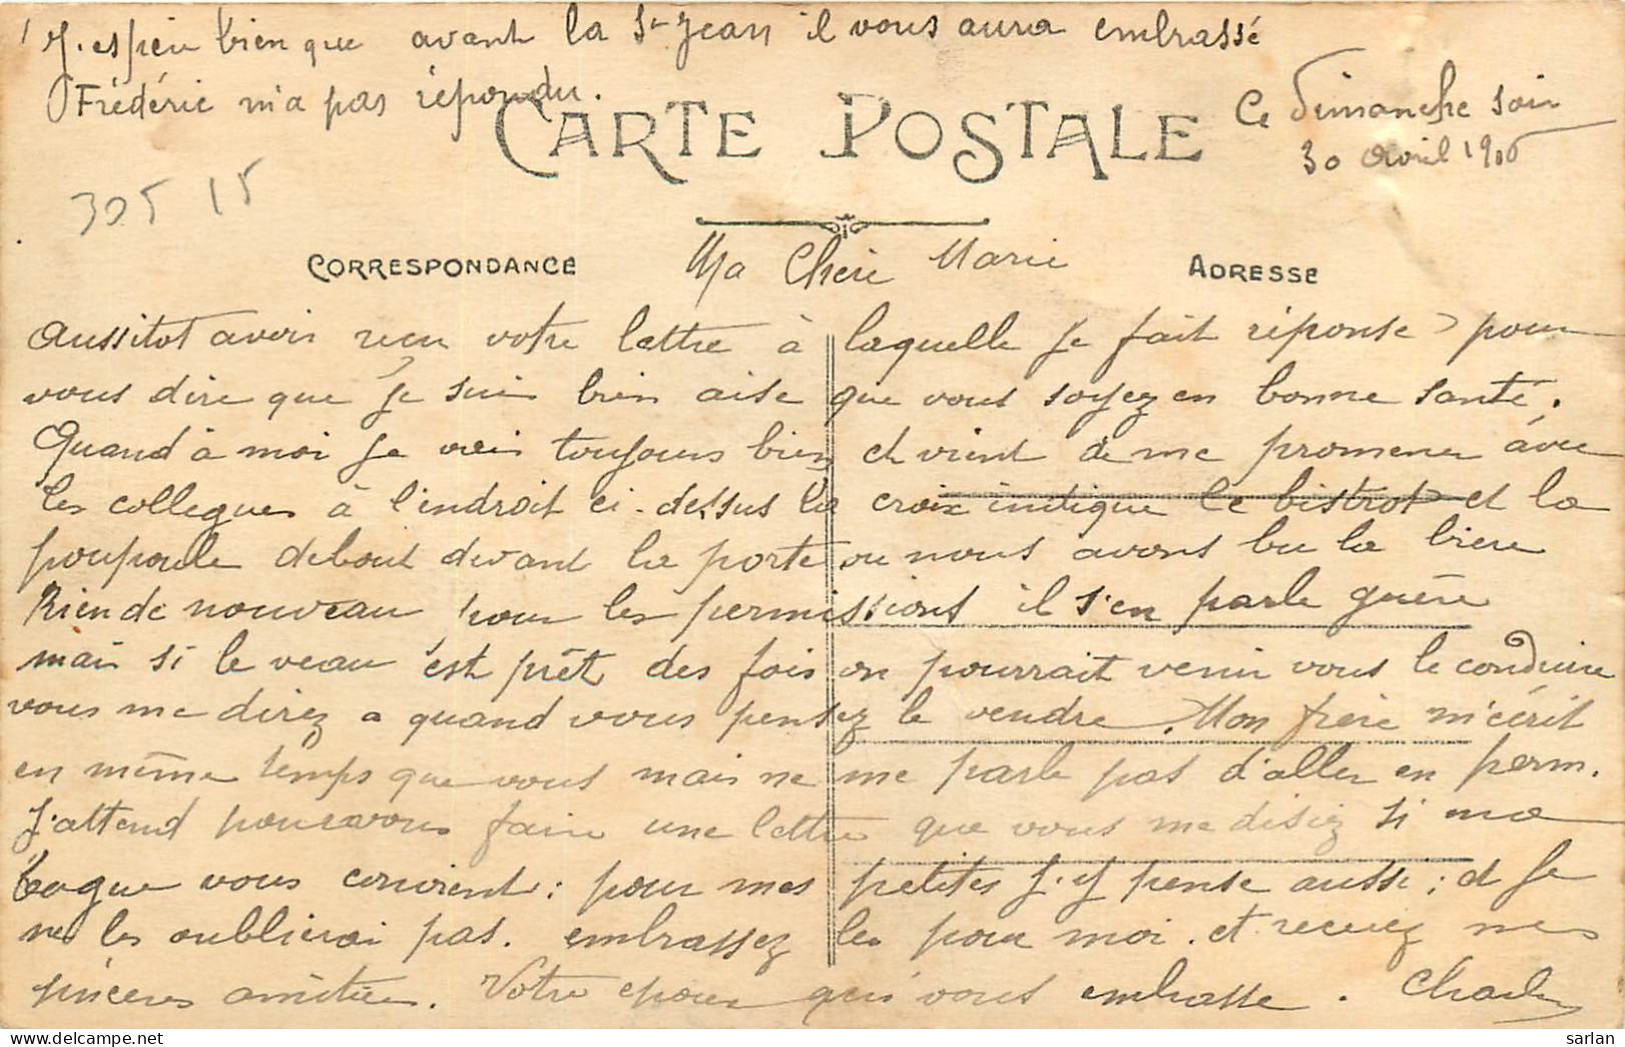 J'espere bien que avant la St Jean il vous aura embrassé
Frédéric m'a pas répondu.
CARTE POSTALE
Ce Dimanche soir
30 Avril 1916
305 15
CORRESPONDANCE
Ma Chère Marie
ADRESSE
Aussitot avoir reçu votre lettre à laquelle je fait réponse pour
vous dire que je suis bien aise que vous soyez en bonne santé.
Quand à moi je vais toujours bien et vient de me promener avec
les collegues à l'indroit ci-dessus la croix indique le bistrot et la
poupoule debout devant la porte ou nous avons bu la biere
Rien de nouveau pour les permissions il s'en parle guère
mais si le veau est prêt des fois on pourrait venir vous le conduire
vous me direz a quand vous pensez le vendre. Mon frère m'écrit
en même temps que vous mais ne me parle pas d'aller en perm.
J'attend pour vous faire une lettre que vous me disiez si ma
bague vous convient: pour mes petites j'y pense aussi; et je
ne les oublierai pas. embrassez les pour moi. et recevez mes
sincères amitiées. Votre epoux qui vous embrasse. Charles
sarlan